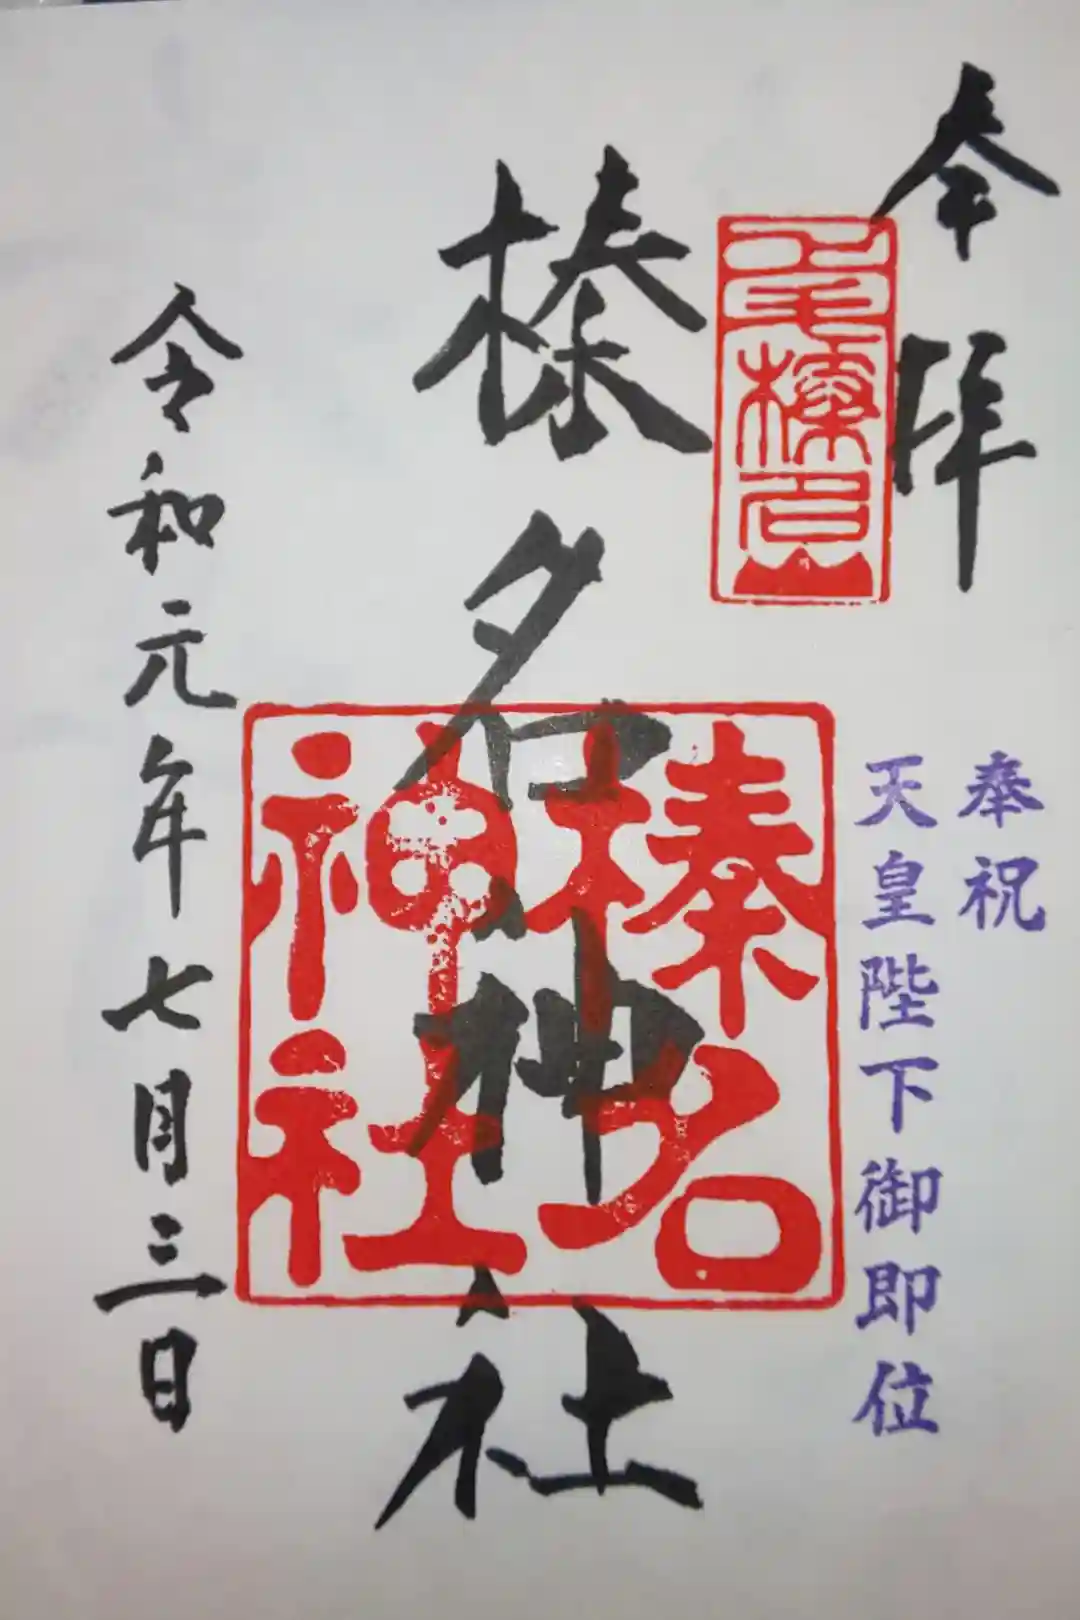 奉拝
榛名山
奉祝
天皇陛下御即位
榛名神社
榛名
神社
令和元年七月三日